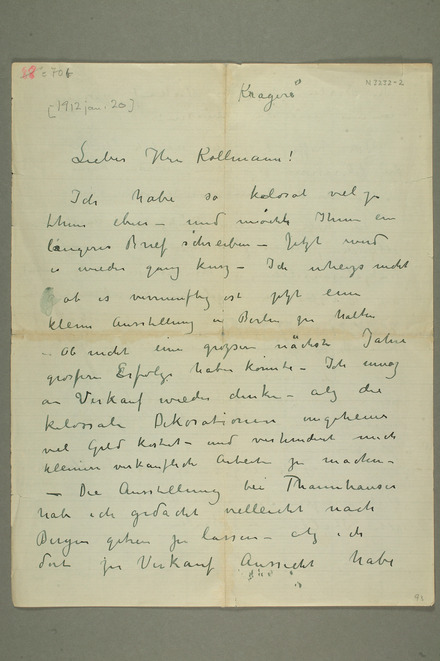 N 3232-2
[1912 jan. 20]
Kragerø
Lieber Herr Kollmann!
Ich habe so kolosal viel zu
thun eben – und möchte Ihnen ein
längeres Brief schreiben – Jetzt wird
es wieder ganz kurz – Ich weiss nicht
ob es vernunftig ist jetzt eine
kleine Ausstellung in Berlin zu halten
– Ob nicht eine grossere nächste Jahre
grossere Erfolge haben konnte – Ich
an Verkauf wieder denken – als die
kolossale Dekorationen ungeheuer
viel Geld kostet – und verhindert mich
kleinere verkaufliche Arbeite zu machen –
– Die Ausstellung bei Thannhauser
habe ich gedacht vielleicht nach
Bergen gehen zu lassen – als ich
dort zu Verkauf Aussicht habe